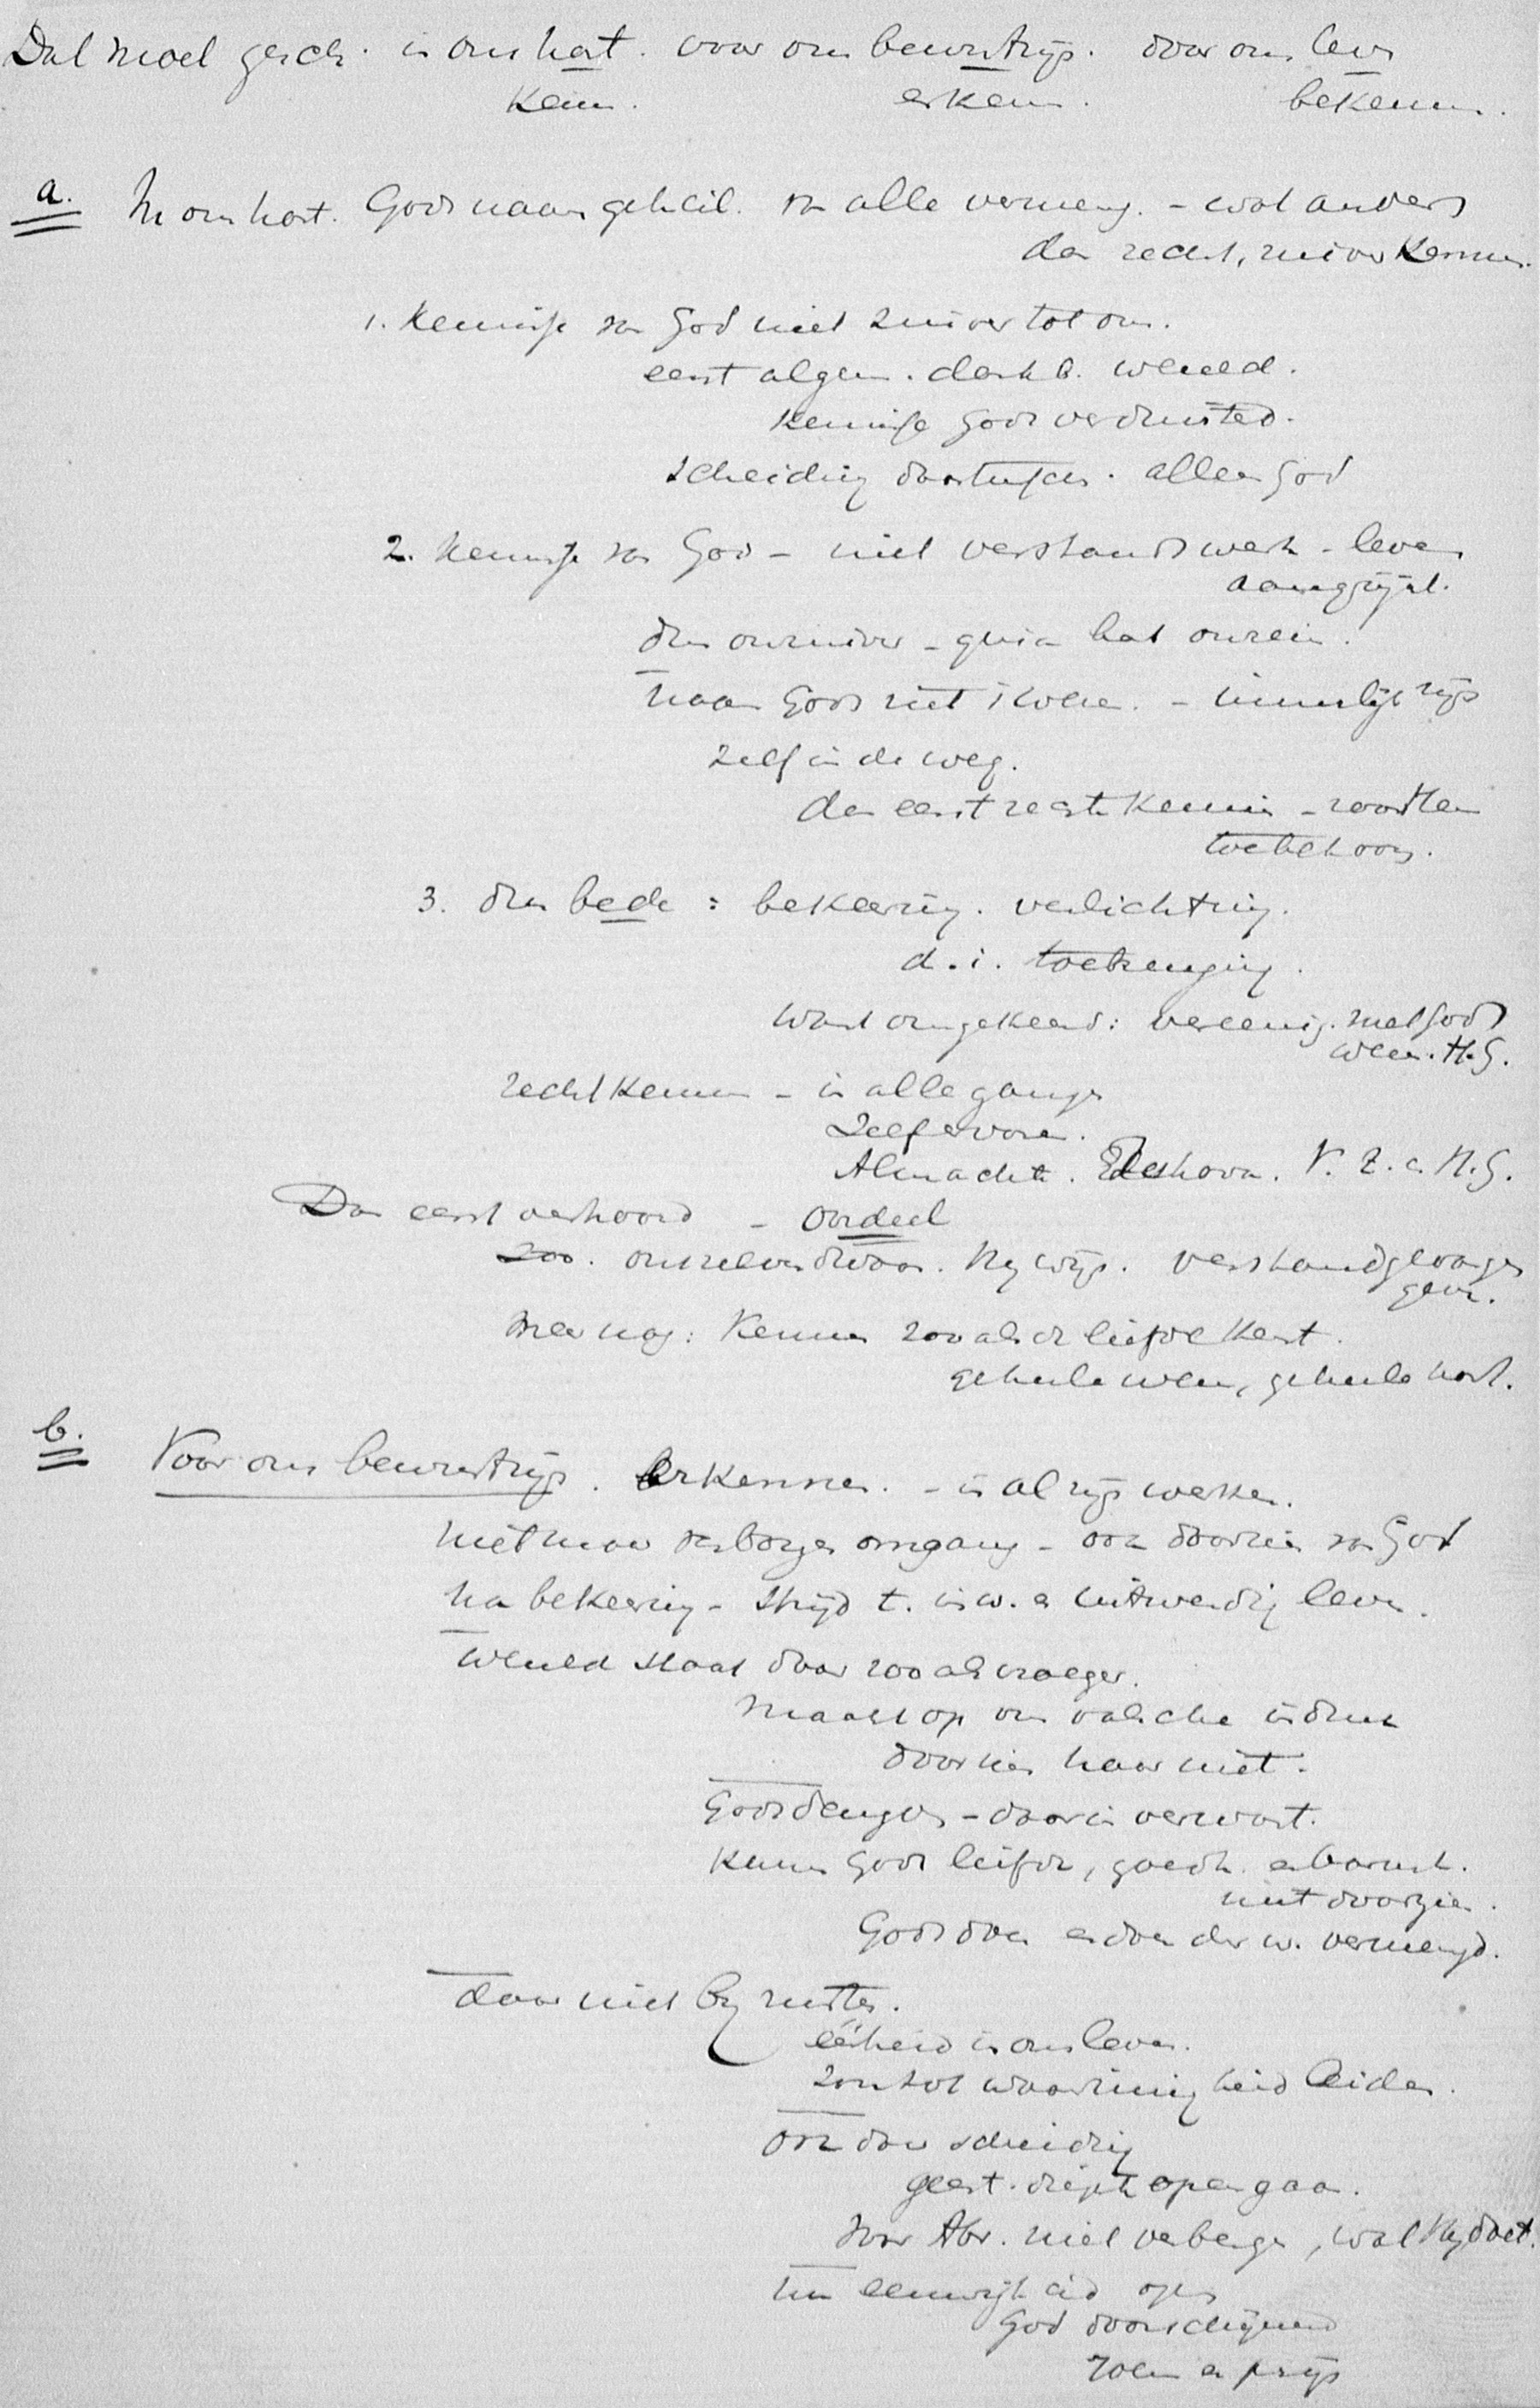 Dat moet gesch. in ons hart. voor ons bewustzijn. door ons leven
kenn. erkenn. bekennen.
a. In ons hart. Gods naam geheil. van alle vermeng. - wat anders
dan recht, zuiver kennen.
1. Kennisse van God niet zuiver tot ons.
eerst algem. denkb. wereld.
kennisse Gods verduisterd.
scheiding daartusschen. alleen God
2. Kennisse van God - niet verstands werk - leven
aangrijpt.
dus onzuiver - quia hart onrein.
naar Gods niet wezen. - innerlijk zijn
zelf in de weg.
dan eerst rechte kennis - voortlen
toebehoor.
3. dus bede: bekeering. verlichting.
d.i. toebrenging.
Want omgekeerd: vereenig. met Gods
wezen. H.G.
recht kennen - in alle gangen
Zelf ervaren.
Almacht. Jehova. V. Z. en H.G.
Dan eerst verhoord - oordeel
zoo. onszelven dwaas. Hij wijs. verstand gevangen
geven.
Meer nog: Kennen zooals de liefde kent.
geheele wezen, geheele hart.
b. Voor ons bewustzijn. Erkennen. - in al zijn werken.
Niet maar verborgen omgang - ook doorzien van God
Na bekeering - strijd t. inw. en uitwendig leven.
Wereld staat daar zooals vroeger.
maakt op ons valsche indruk
doorzien haar niet.
Gods deugden - daarin verwart.
Kunnen Gods liefde, goedh. en barmh.
niet doorzien.
Gods doen en doen der w. vermengd.
daar niet bij rusten.
eenheid in ons leven.
zou tot waanzinnigheid leiden.
ook daar scheiding
geest. diepte opengaan.
Voor Abr. niet verbergen, wat Hij doet.
hun eeuwigheid open
God doorschijnend
roem en prijs